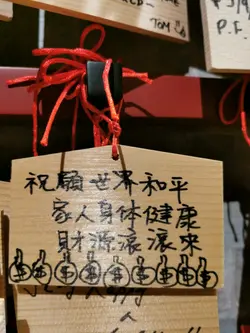 TOM
P.F.
祝願世界和平
家人身体健康
財源滾滾來
人